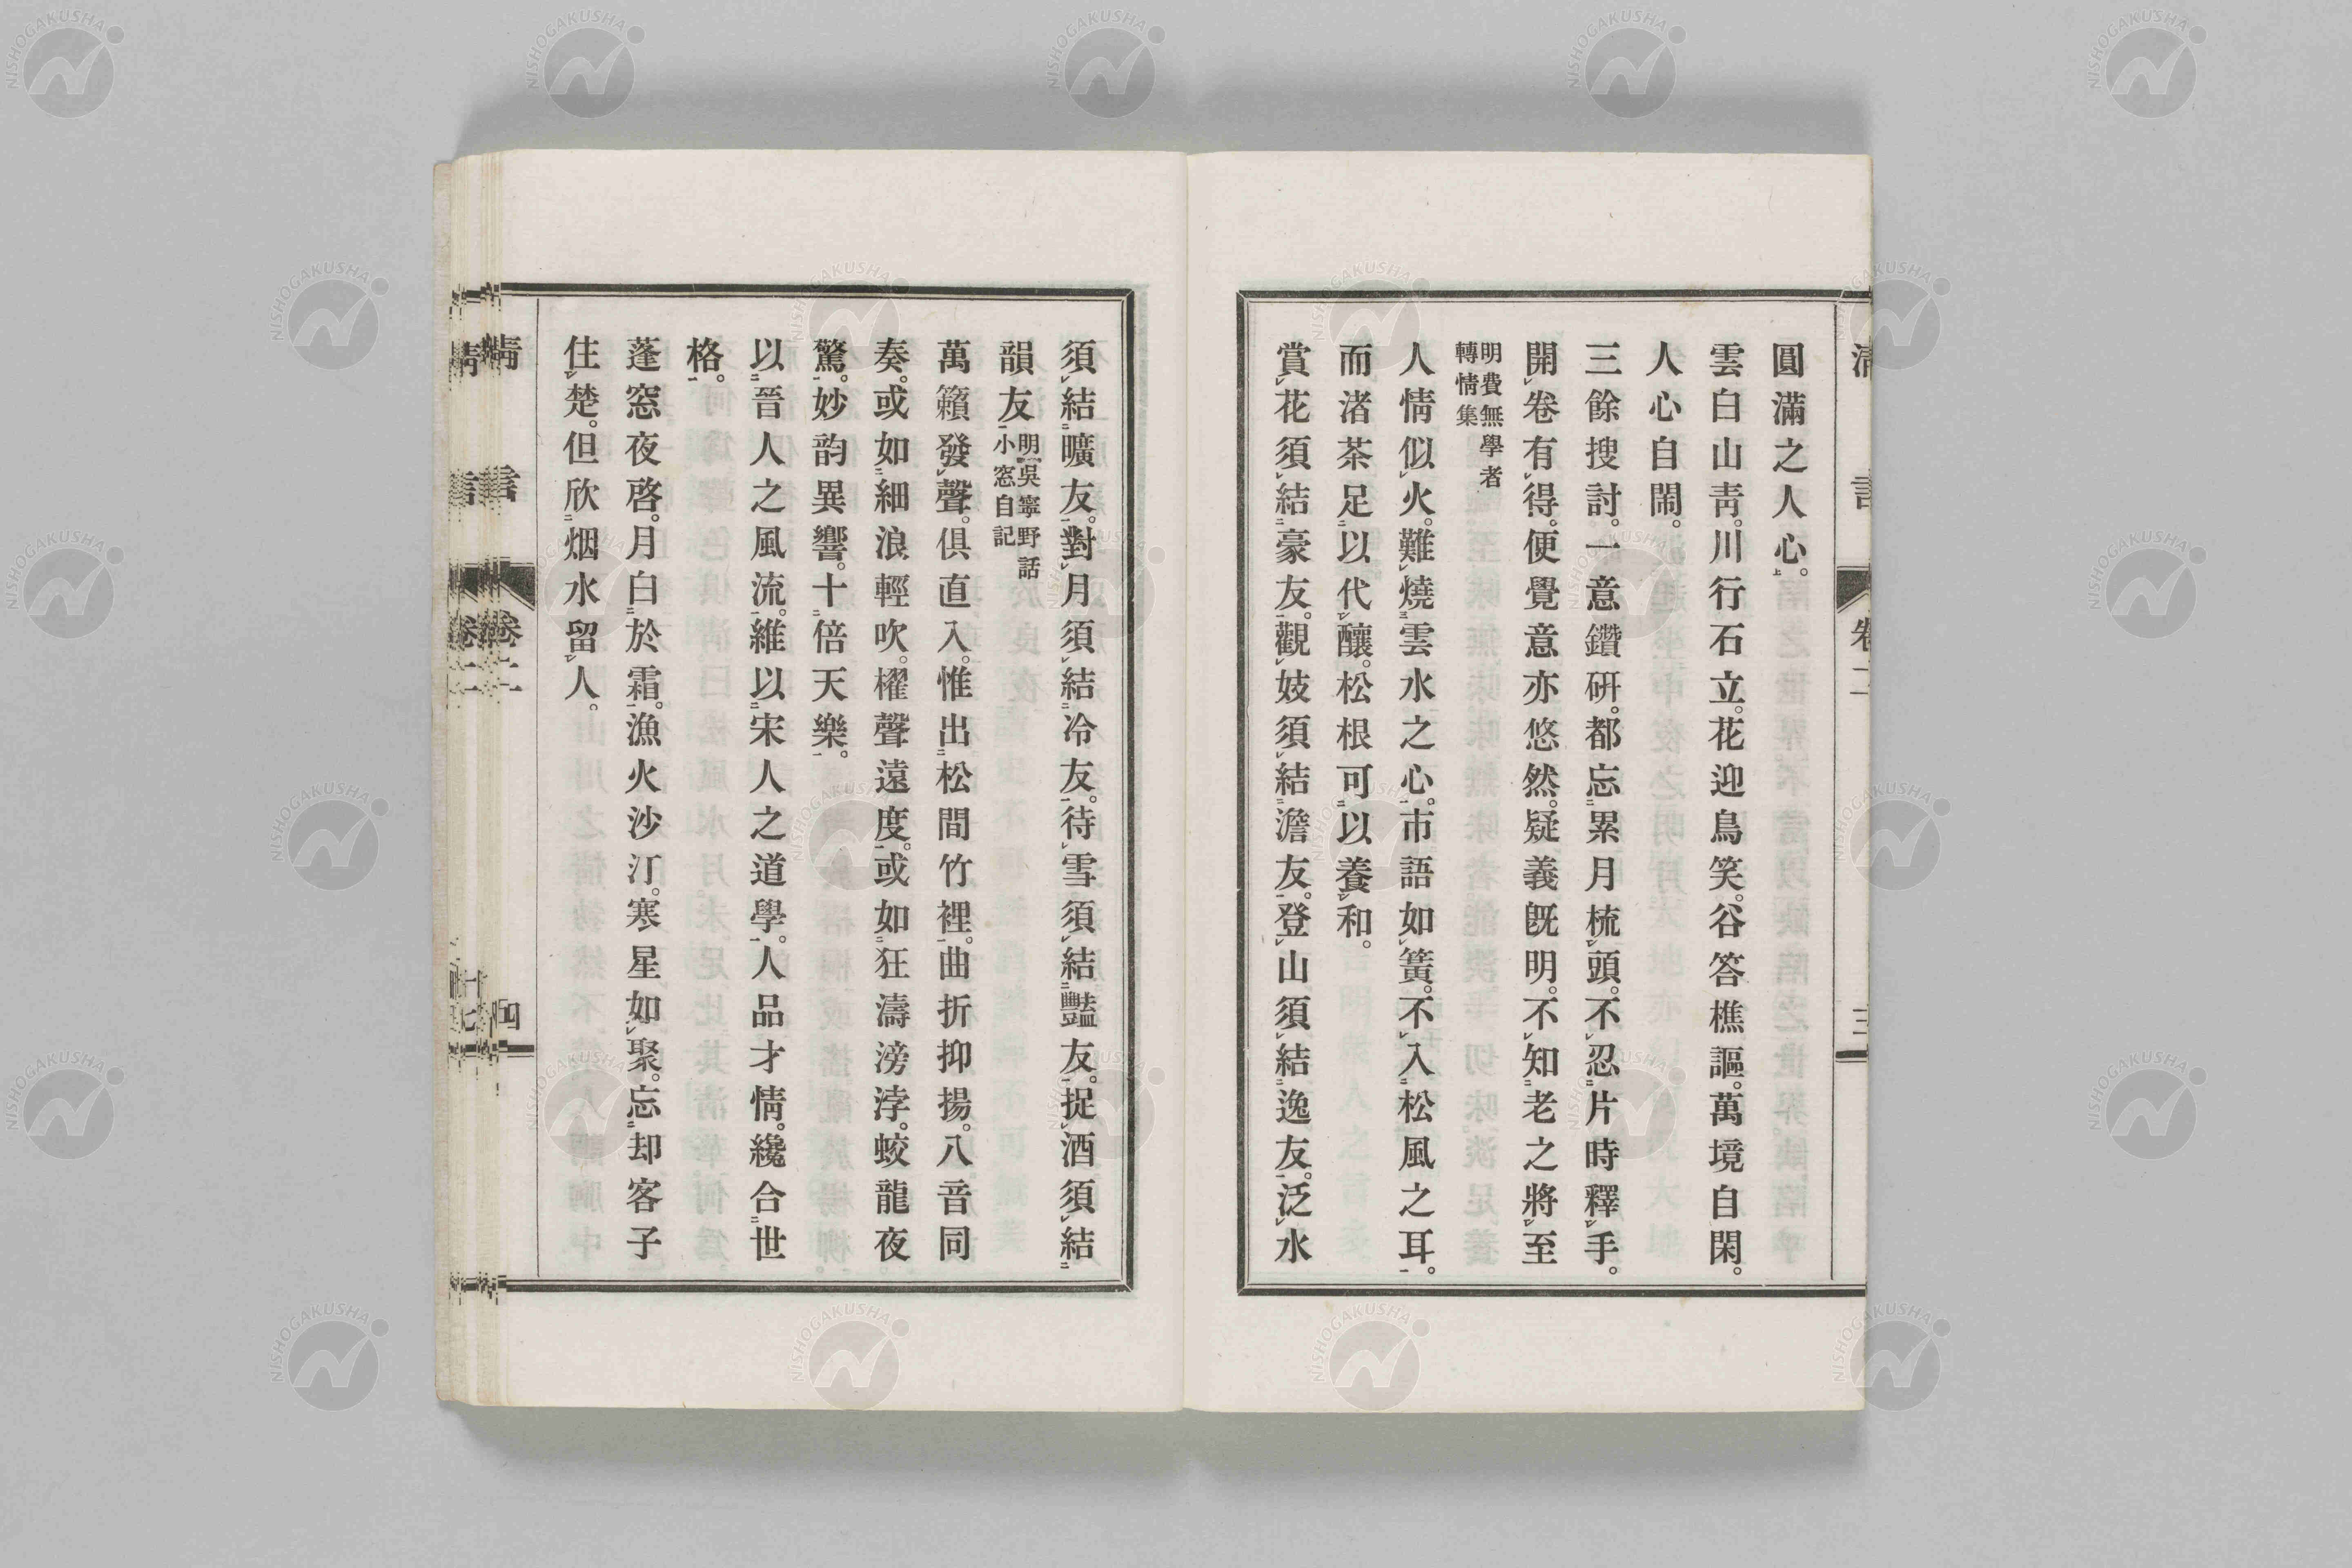 圓滿之人心。
雲白山靑。川行石立。花迎鳥笑。谷答樵謳。萬境自閑。
人心自閙。
三餘搜討。一意鑽硏。都忘累月梳頭。不忍片時釋手。
開卷有得。便覺意亦悠然。疑義旣明。不知老之將至
明費無學者
轉情集
人情似火。難燒雲水之心。市語如簧。不入松風之耳。
而渚茶足以代釀。松根可以養和。
賞花須結豪友。觀妓須結澹友。登山須結逸友。泛水
須結曠友。對月須結冷友。待雪須結豔友。捉酒須結
韻友 明吳寧野話
小窓自記
萬籟發聲。俱直入。惟出松間竹裡。曲折抑揚。八音同
奏。或如細浪輕吹。櫂聲遠度。或如狂濤滂浡。蛟龍夜
驚。妙韵異響。十倍天樂。
以晉人之風流。維以宋人之道學。人品才情。纔合世
格。
蓬窓夜啓。月白於霜。漁火沙汀。寒星如聚。忘却客子
住楚。但欣烟水留人。
卷二
四
NISHOGAKUSHA